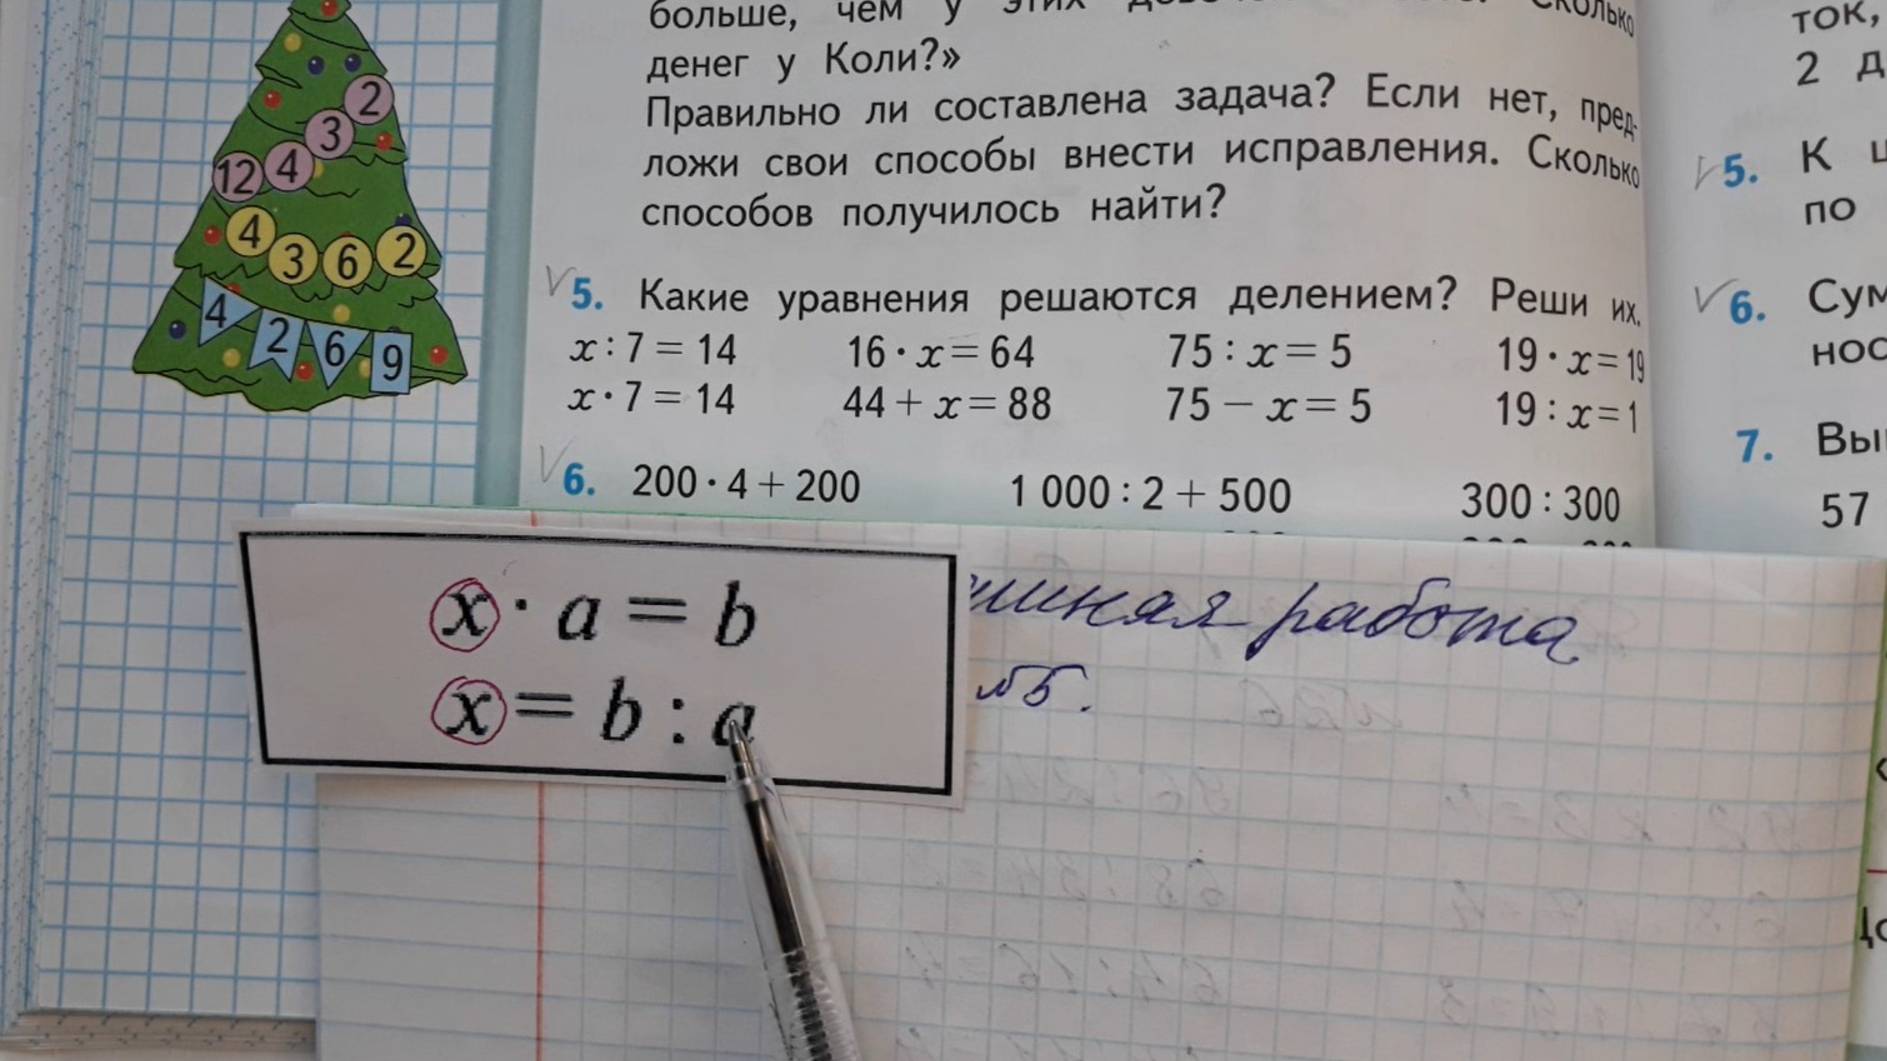 больше, чем у этих
денег у Коли?»
Правильно ли составлена задача? Если нет, пред-
ложи свои способы внести исправления. Сколько
способов получилось найти?
5. Какие уравнения решаются делением? Реши их.
x : 7 = 14 16 · x = 64 75 : x = 5 19 · x = 19
x · 7 = 14 44 + x = 88 75 − x = 5 19 : x = 1
6. 200 · 4 + 200 1 000 : 2 + 500 300 : 300
2
3
12 4
4 3 6 2
4 2 6 9
x · a = b
x = b : a
работа
№5.
ток,
2
5. К
по
6.
7.
57